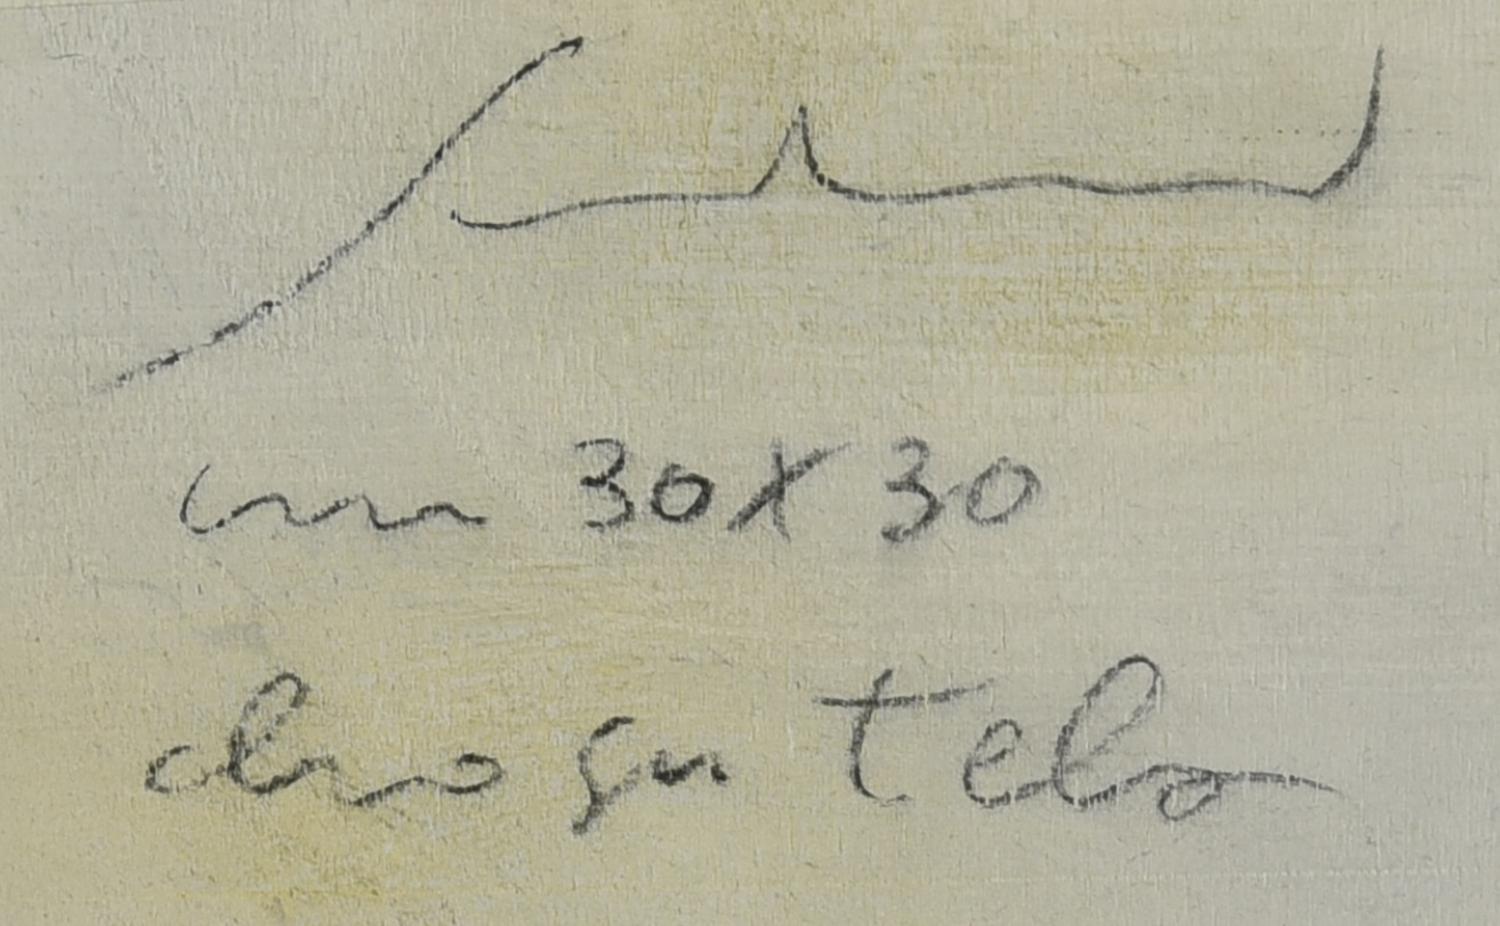 cm 30X30
olio su tela